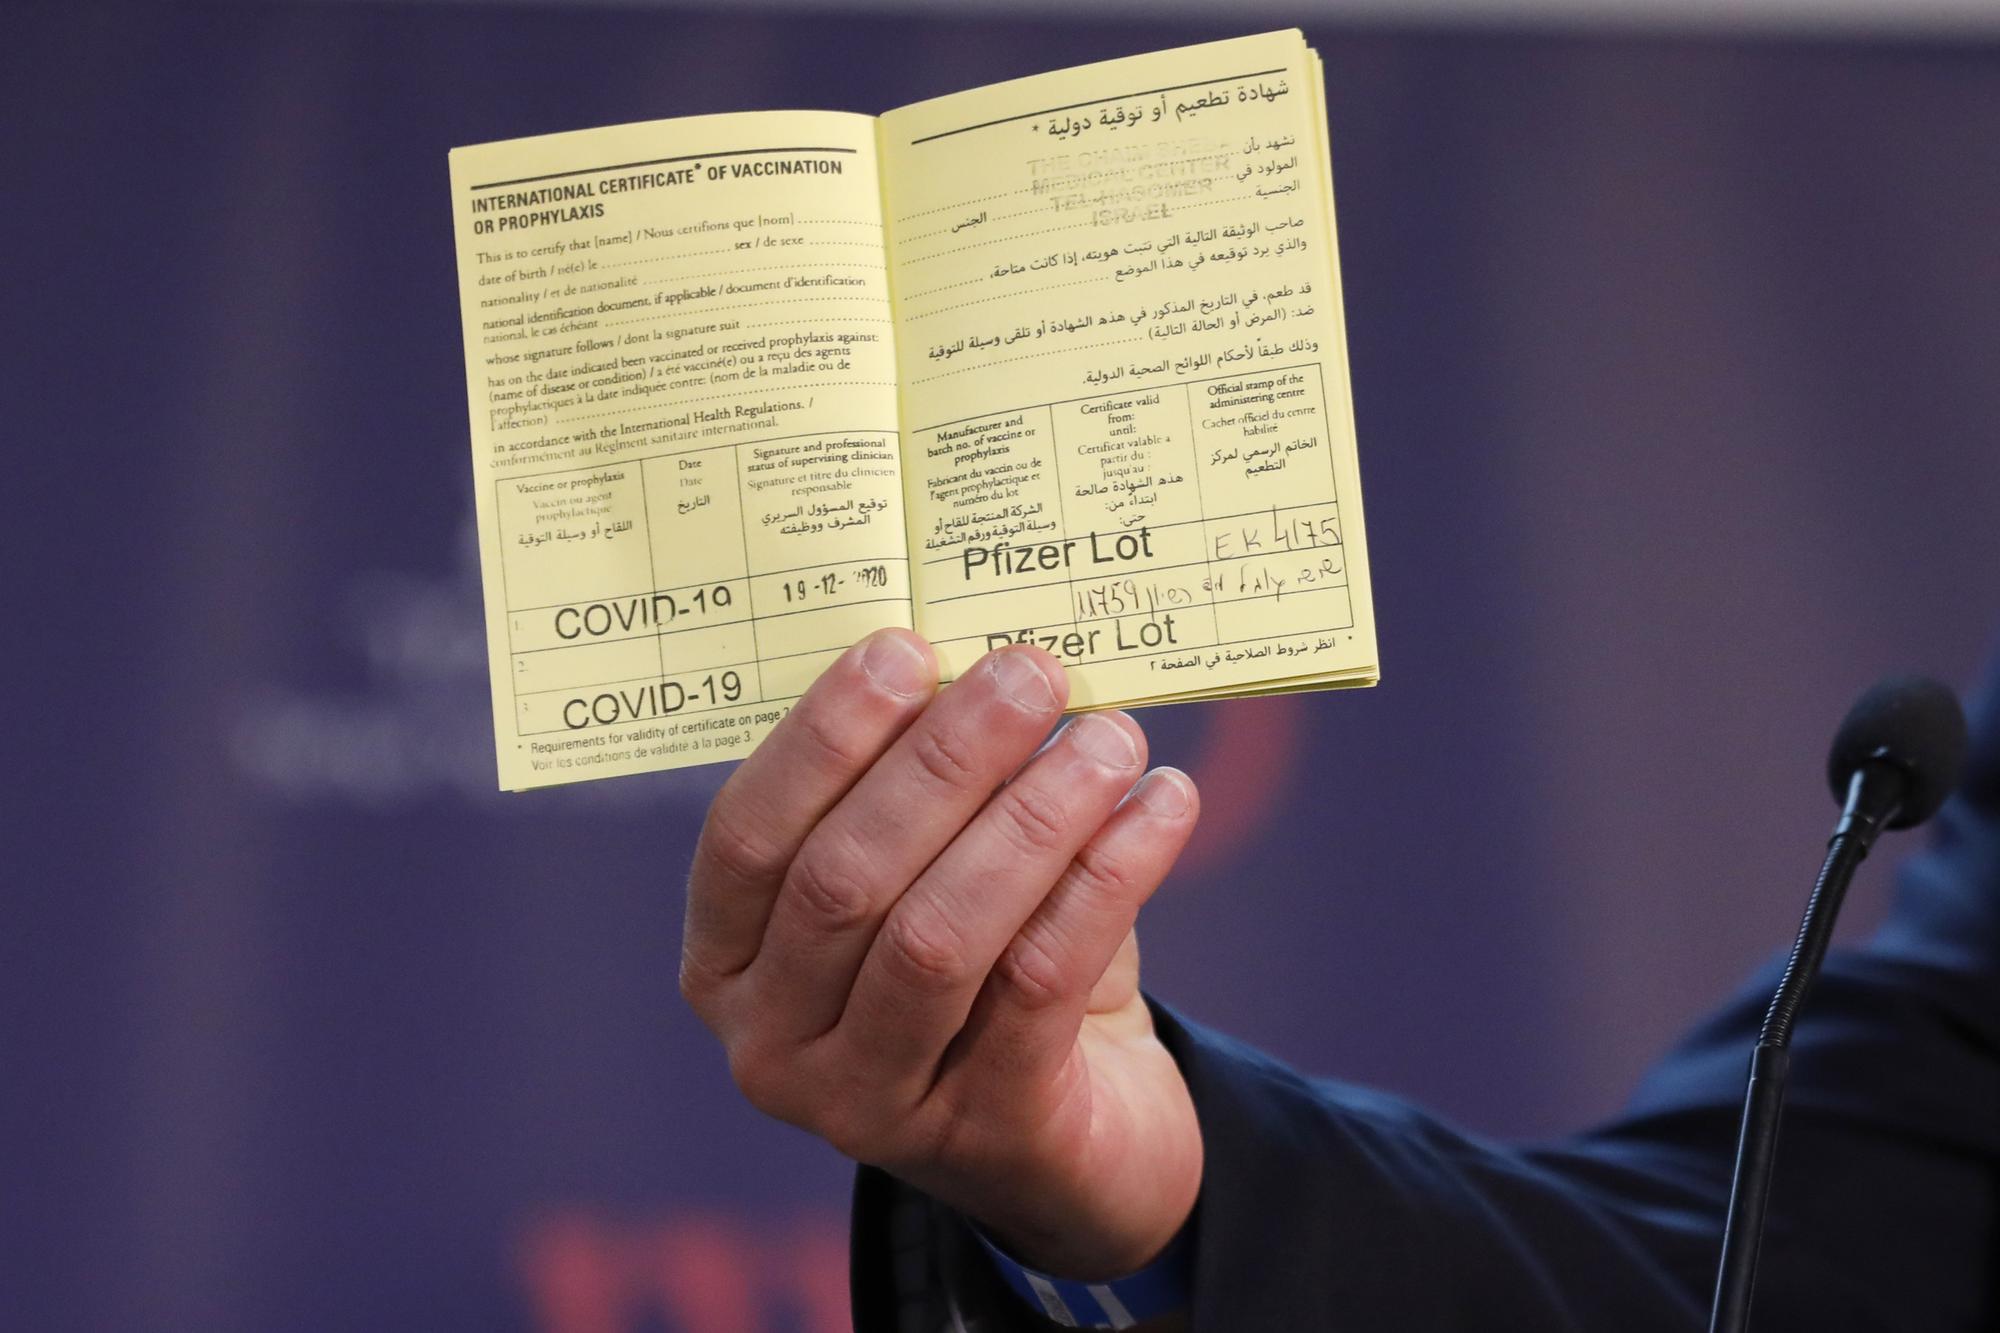 INTERNATIONAL CERTIFICATE* OF VACCINATION
OR PROPHYLAXIS
This is to certify that [name] / Nous certifions que [nom]
date of birth / né(e) le sex / de sexe
nationality / et de nationalité
national identification document, if applicable / document d'identification
national, le cas échéant
whose signature follows / dont la signature suit
has on the date indicated been vaccinated or received prophylaxis against:
(name of disease or condition) / a été vacciné(e) ou a reçu des agents
prophylactiques à la date indiquée contre: (nom de la maladie ou de
l'affection)
in accordance with the International Health Regulations. /
conformément au Règlment sanitaire international.
Vaccine or prophylaxis
Vaccin ou agent
prophylactique
اللقاح أو وسيلة التوقية
Date
Date
التاريخ
Signature and professional
status of supervising clinician
Signature et titre du clinicien
responsable
توقيع المسؤول السريري
المشرف ووظيفته
1.
COVID-19
19-12-2020
2.
3.
COVID-19
* Requirements for validity of certificate on page
Voir les conditions de validité à la page 3.
شهادة تطعيم أو توقية دولية *
THE CHAIM SHEBA
MEDICAL CENTER
TEL-HASOMER
ISRAEL
نشهد بأن
المولود في
الجنسية الجنس
صاحب الوثيقة التالية التي تثبت هويته، إذا كانت متاحة،
والذي يرد توقيعه في هذا الموضع
قد طعم، في التاريخ المذكور في هذه الشهادة أو تلقى وسيلة للتوقية
ضد: (المرض أو الحالة التالية)
وذلك طبقاً لأحكام اللوائح الصحية الدولية.
Manufacturer and
batch no. of vaccine or
prophylaxis
Fabricant du vaccin ou de
l'agent prophylactique et
numéro du lot
الشركة المنتجة للقاح أو
وسيلة التوقية ورقم التشغيلة
Certificate valid
from:
until:
Certificat valable a
partir du :
jusqu'au :
هذه الشهادة صالحة
ابتداءً من:
حتى:
Official stamp of the
administering centre
Cachet officiel du centre
habilité
الخاتم الرسمي لمركز
التطعيم
Pfizer Lot
EK 4175
11759
Pfizer Lot
* انظر شروط الصلاحية في الصفحة ٢